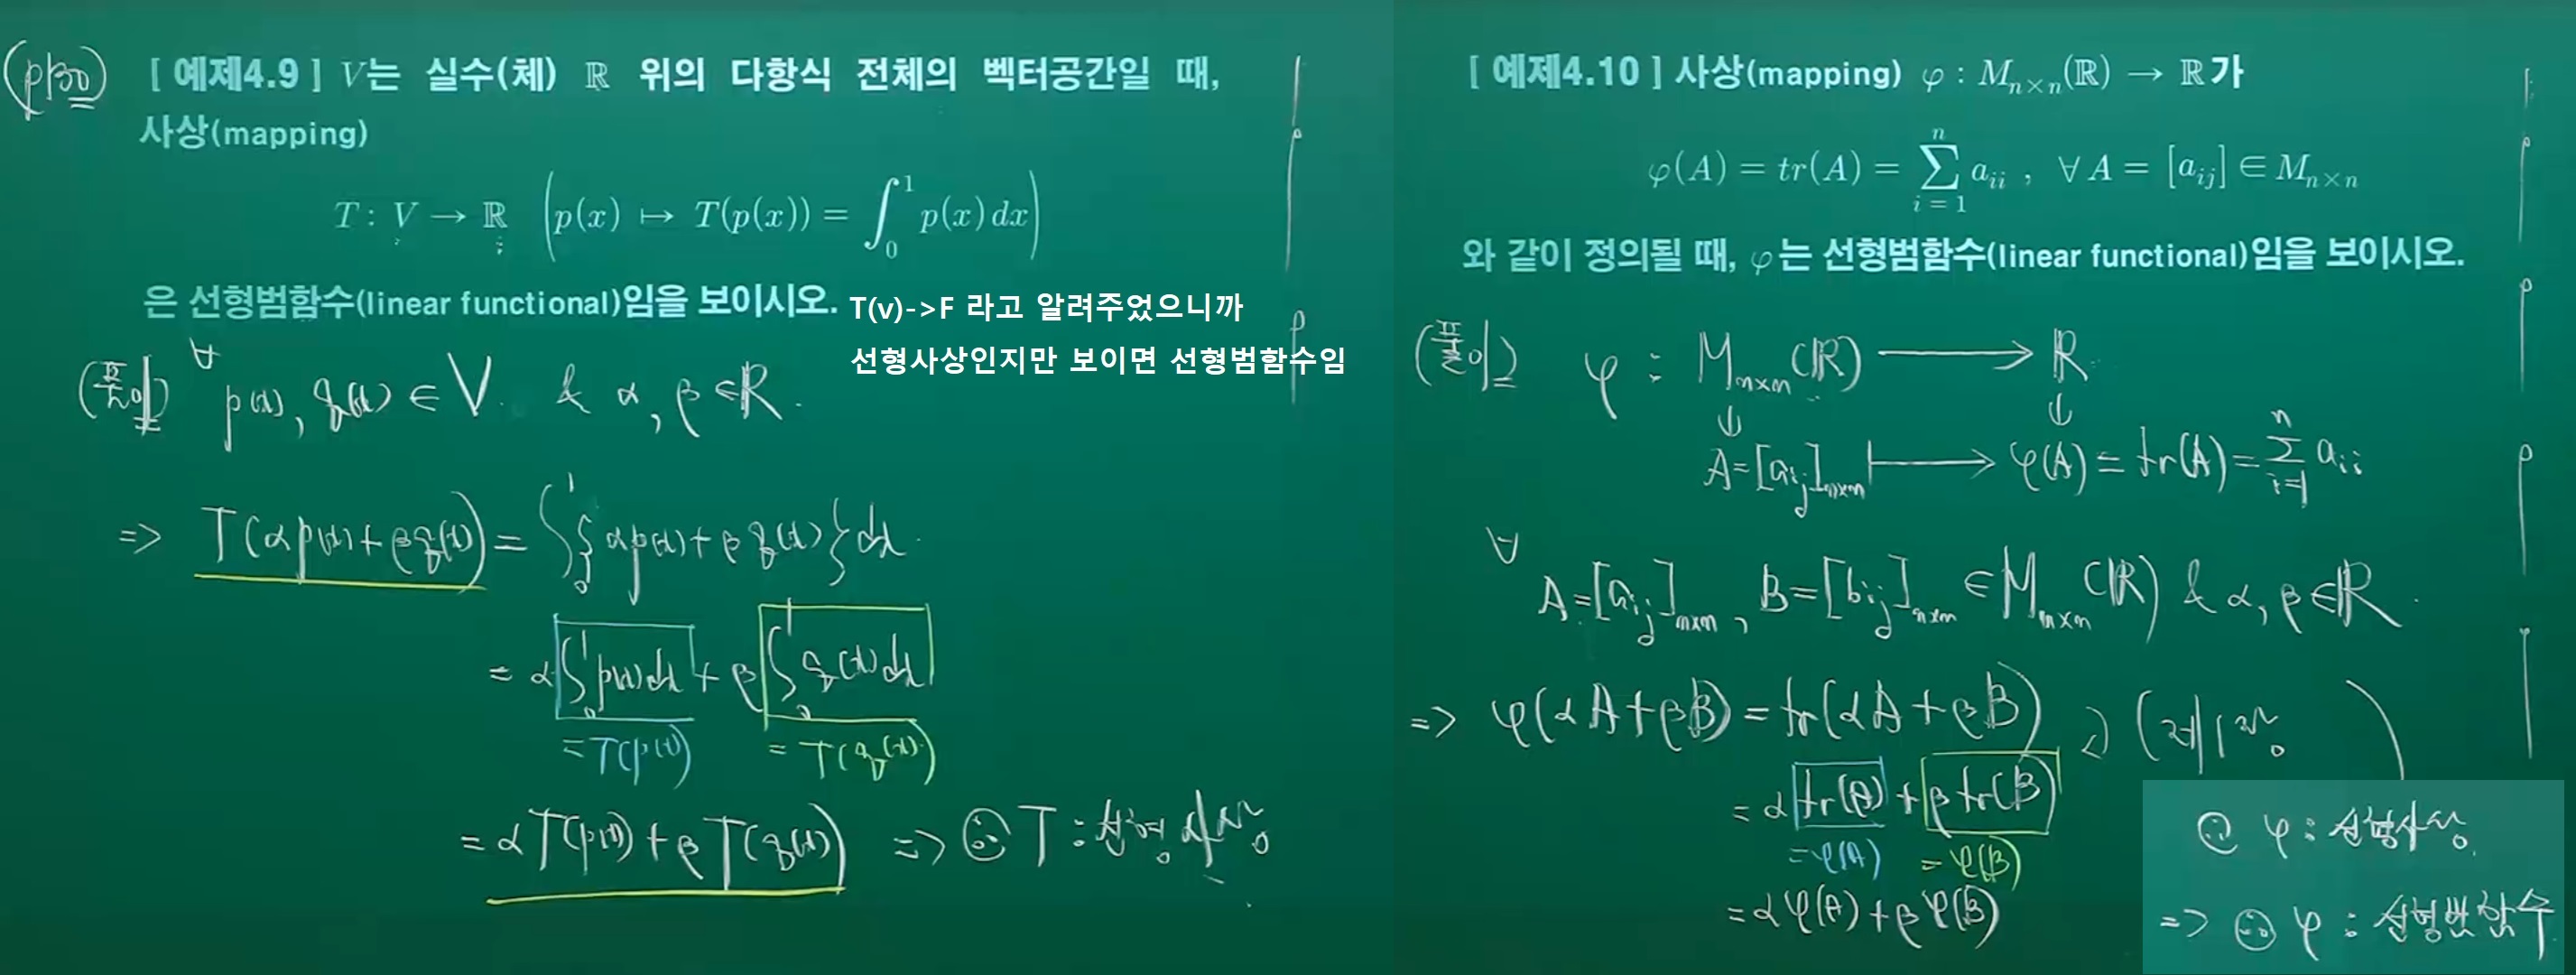 (p130)
[ 예제4.9 ] V는 실수(체) ℝ 위의 다항식 전체의 벡터공간일 때,
사상(mapping)
T : V → ℝ (p(x) ↦ T(p(x)) = ∫₀¹ p(x) dx)
은 선형범함수(linear functional)임을 보이시오.
T(v)->F 라고 알려주었으니까
선형사상인지만 보이면 선형범함수임
(풀이) ∀ p(x), q(x) ∈ V & α, β ∈ ℝ.
=> T(αp(x)+βq(x)) = ∫₀¹ {αp(x)+βq(x)}dx
= α∫₀¹ p(x)dx + β∫₀¹ q(x)dx
=T(p(x)) =T(q(x))
= αT(p(x)) + βT(q(x)) => ∴ T : 선형사상
[ 예제4.10 ] 사상(mapping) φ : Mₙ×ₙ(ℝ) → ℝ가
φ(A) = tr(A) = ∑ᵢ₌₁ⁿ aᵢᵢ , ∀ A = [aᵢⱼ] ∈ Mₙ×ₙ
와 같이 정의될 때, φ는 선형범함수(linear functional)임을 보이시오.
(풀이) φ : Mₙ×ₙ(ℝ) → ℝ
A=[aᵢⱼ]ₙ×ₙ ↦ φ(A) = tr(A) = ∑ᵢ₌₁ⁿ aᵢᵢ
∀ A=[aᵢⱼ]ₙ×ₙ, B=[bᵢⱼ]ₙ×ₙ ∈ Mₙ×ₙ(ℝ) & α, β ∈ ℝ.
=> φ(αA+βB) = tr(αA+βB)
= αtr(A) + βtr(B)
=φ(A) =φ(B)
= αφ(A) + βφ(B)
∴ φ : 선형사상
=> ∴ φ : 선형범함수